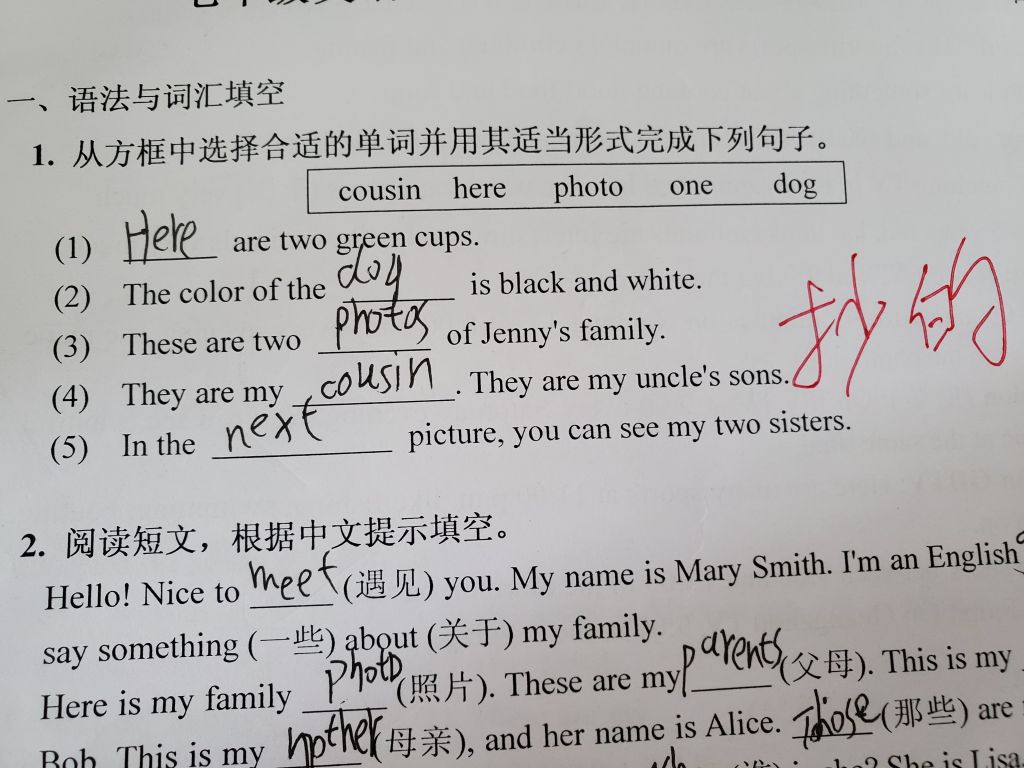 一、语法与词汇填空
1. 从方框中选择合适的单词并用其适当形式完成下列句子。
cousin here photo one dog
(1) Here are two green cups.
(2) The color of the dog is black and white.
(3) These are two photos of Jenny's family.
(4) They are my cousin. They are my uncle's sons.
(5) In the next picture, you can see my two sisters.
抄的
2. 阅读短文，根据中文提示填空。
Hello! Nice to meet (遇见) you. My name is Mary Smith. I'm an English
say something (一些) about (关于) my family.
Here is my family photo (照片). These are my parents (父母). This is my
Bob. This is my mother (母亲), and her name is Alice. Those (那些) are
she? She is Lisa.